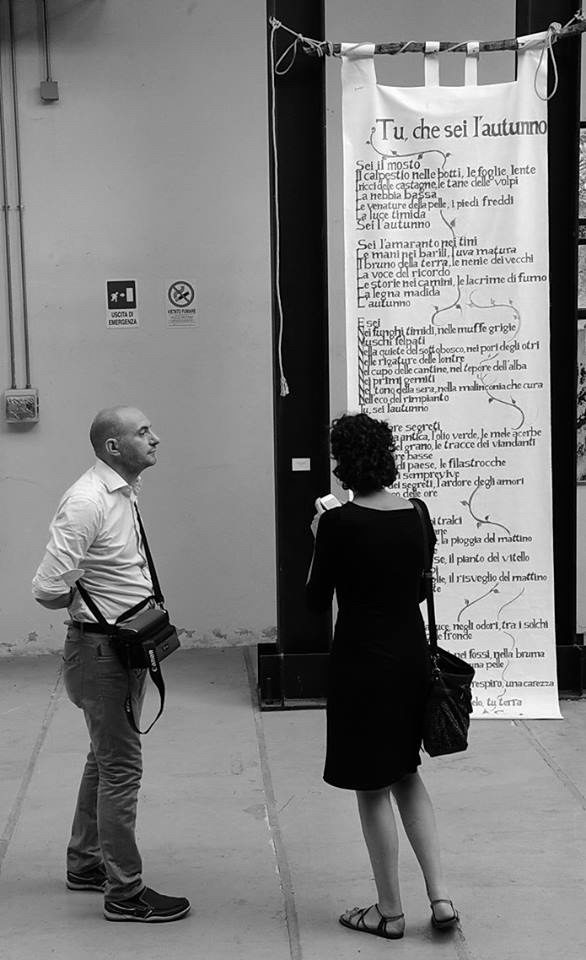 Tu, che sei l'autunno
Sei il mosto
Il calpestio nelle botti, le foglie lente
I ricci delle castagne, le tane delle volpi
La nebbia bassa
Le venature della pelle, i piedi freddi
La luce timida
Sei l'autunno
Sei l'amaranto nei tini
Le mani nei barili, l'uva matura
Il bruno della terra, le nenie dei vecchi
La voce del ricordo
Le storie nei camini, le lacrime di fumo
La legna madida
E autunno
E sei
Nei funghi timidi, nelle muffe grigie
Muschi felpati
Nella quiete del sottobosco, nei pori degli otri
Nelle rigature delle lontre
Nel cupo delle cantine, nel tepore dell'alba
Nei primi gemiti
Nel tono della sera, nella malinconia che cura
Nell'eco del rimpianto
Tu, sei l'autunno
segreti
antica, l'olio verde, le mele acerbe
del grano, le tracce dei viandanti
basse
di paese, le filastrocche
semprevive
dei segreti, l'ardore degli amori
delle ore
tralci
la pioggia del mattino
il pianto del vitello
il risveglio del mattino
negli odori, tra i solchi
fronde
nei fossi, nella bruma
una pelle
respiro, una carezza
tu terra
USCITA
DI EMERGENZA
VIETATO FUMARE